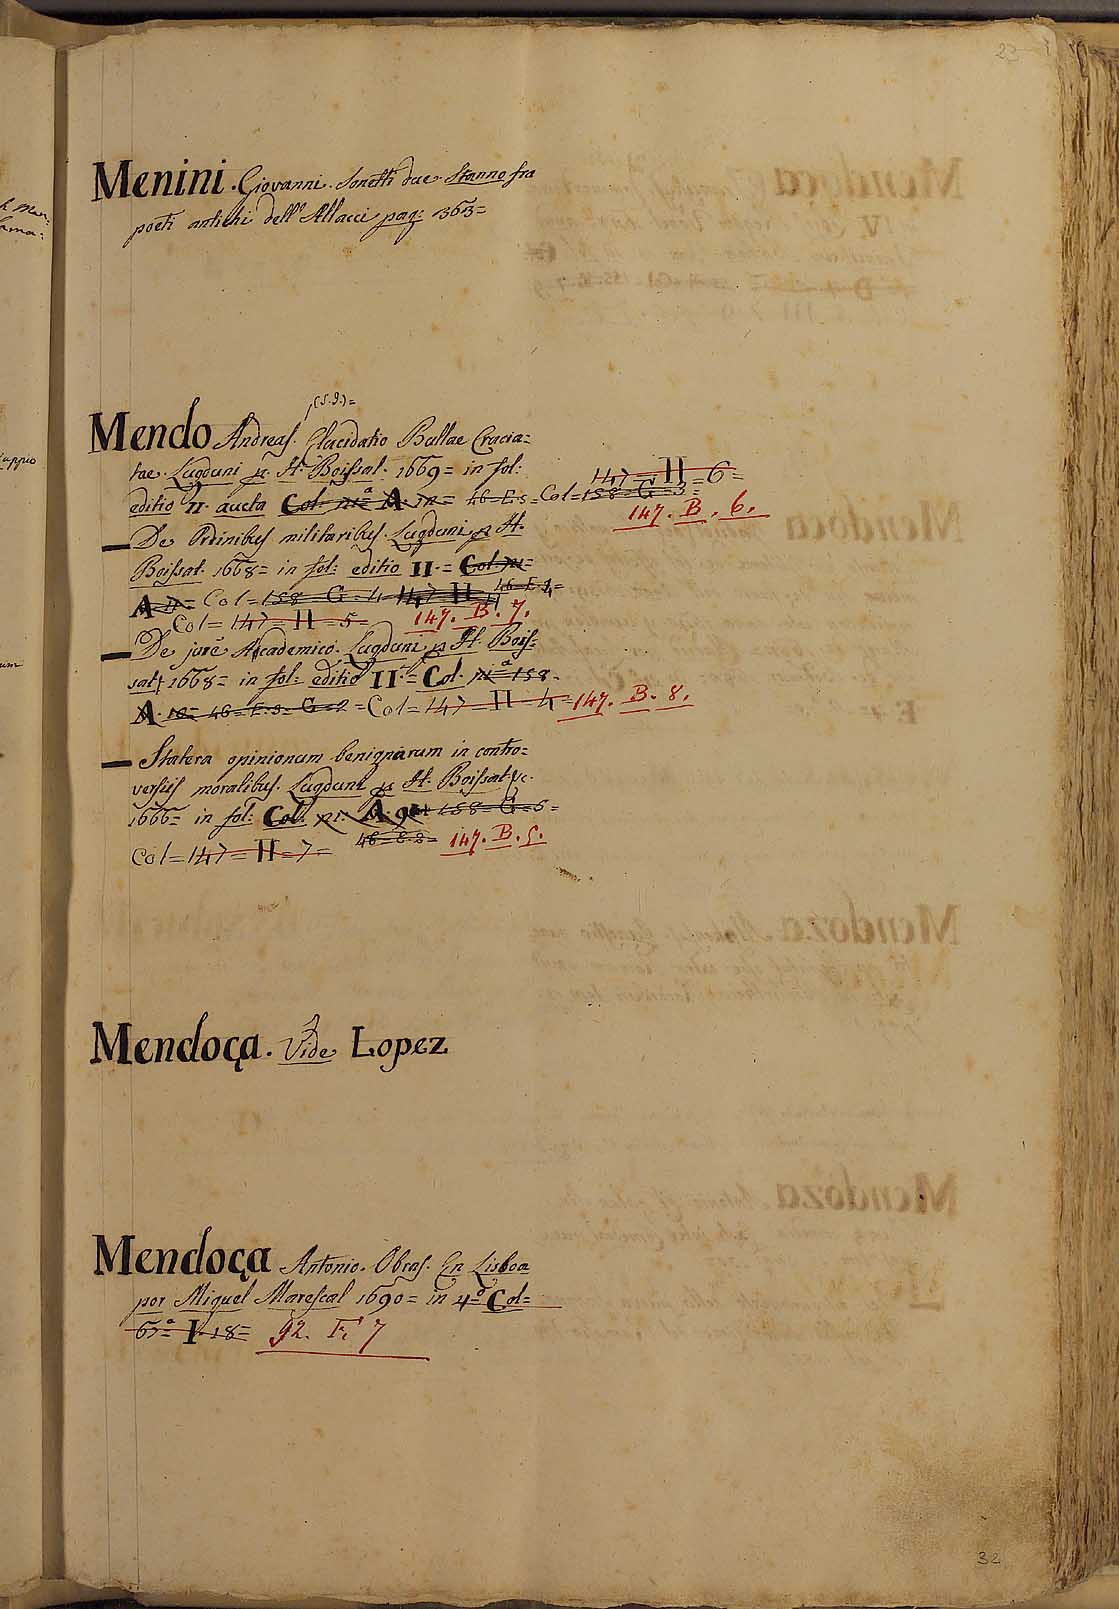 23
Menini. Giovanni. Sonetti due. Stanno fra
poeti antichi dell' Allacci pag: 363=
(S.J.)=
Mendo Andreas. Elucidatio Bullae Crucia=
tae. Lugduni H. Boissat. 1669= in fol:
147= H =6=
editio II. aucta Col. A. 46-E-5= Col=158=G=3=
147. B. 6.
— De Ordinibus militaribus. Lugduni H.
Boissat. 1668= in fol: editio II.= Col
A Col=158 G. 4 147 H 46-E-4=
Col=147= H =5= 147. B. 7.
— De jure Academico. Lugduni H. Bois=
sat 1668= in fol: editio II.= Col. 158-
A. 46=E.3= G=2= Col=147= H =4= 147. B. 8.
— Statera opinionum benignarum in contro=
versiis moralibus. Lugduni H. Boissat &c.
1666= in fol: Col. A. 158=G=5=
46=E-2= 147. B. 5.
Col=147= H =7=
Mendoça. Vide Lopez
Mendoça Antonio. Obras. En Lisboa
por Miguel Marescal 1690= in 4º Col=
67ª I. 18= 92. F. 7
32